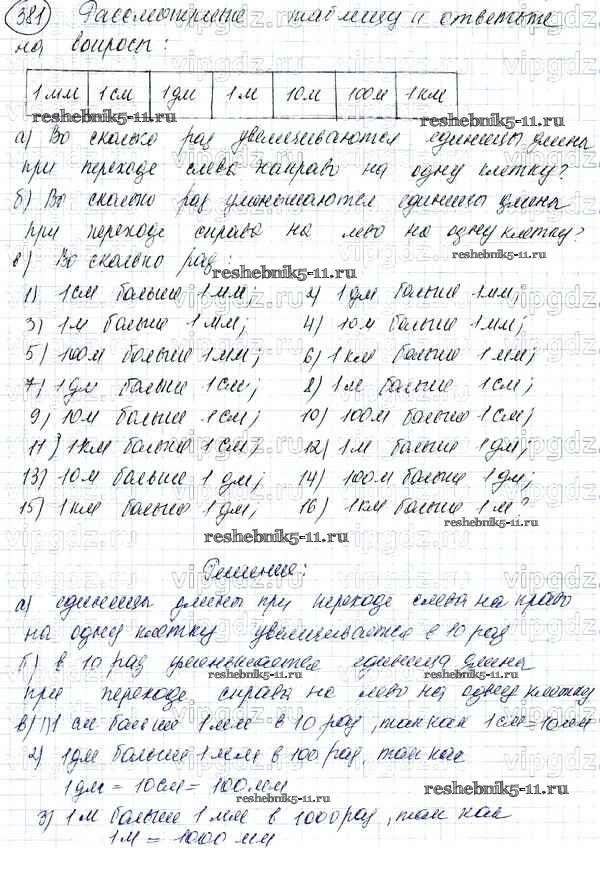 381 Рассмотрите таблицу и ответьте
на вопросы:
1мм 1см 1дм 1м 10м 100м 1км
reshebnik5-11.ru reshebnik5-11.ru
а) Во сколько раз увеличиваются единицы длины
при переходе слева направо на одну клетку?
б) Во сколько раз уменьшаются единицы длины
при переходе справа на лево на одну клетку?
в) Во сколько раз:
reshebnik5-11.ru
1) 1см больше 1мм; 2) 1дм больше 1мм;
3) 1м больше 1мм; 4) 10м больше 1мм;
5) 100м больше 1мм; 6) 1км больше 1мм;
7) 1дм больше 1см; 8) 1м больше 1см;
9) 10м больше 1см; 10) 100м больше 1см;
11) 1км больше 1см; 12) 1м больше 1дм;
13) 10м больше 1дм; 14) 100м больше 1дм;
15) 1км больше 1дм; 16) 1км больше 1м?
reshebnik5-11.ru reshebnik5-11.ru
Решение:
а) единицы длины при переходе слева на право
на одну клетку увеличивается в 10 раз
б) в 10 раз уменьшается единица длины
reshebnik5-11.ru
при переходе справа на лево на одну клетку
в) 1) 1 см больше 1мм в 10 раз, так как 1см=10мм
2) 1дм больше 1мм в 100 раз, так как
1дм = 10см = 100мм
reshebnik5-11.ru
3) 1м больше 1мм в 1000 раз, так как
1м = 1000 мм
reshebnik5-11.ru